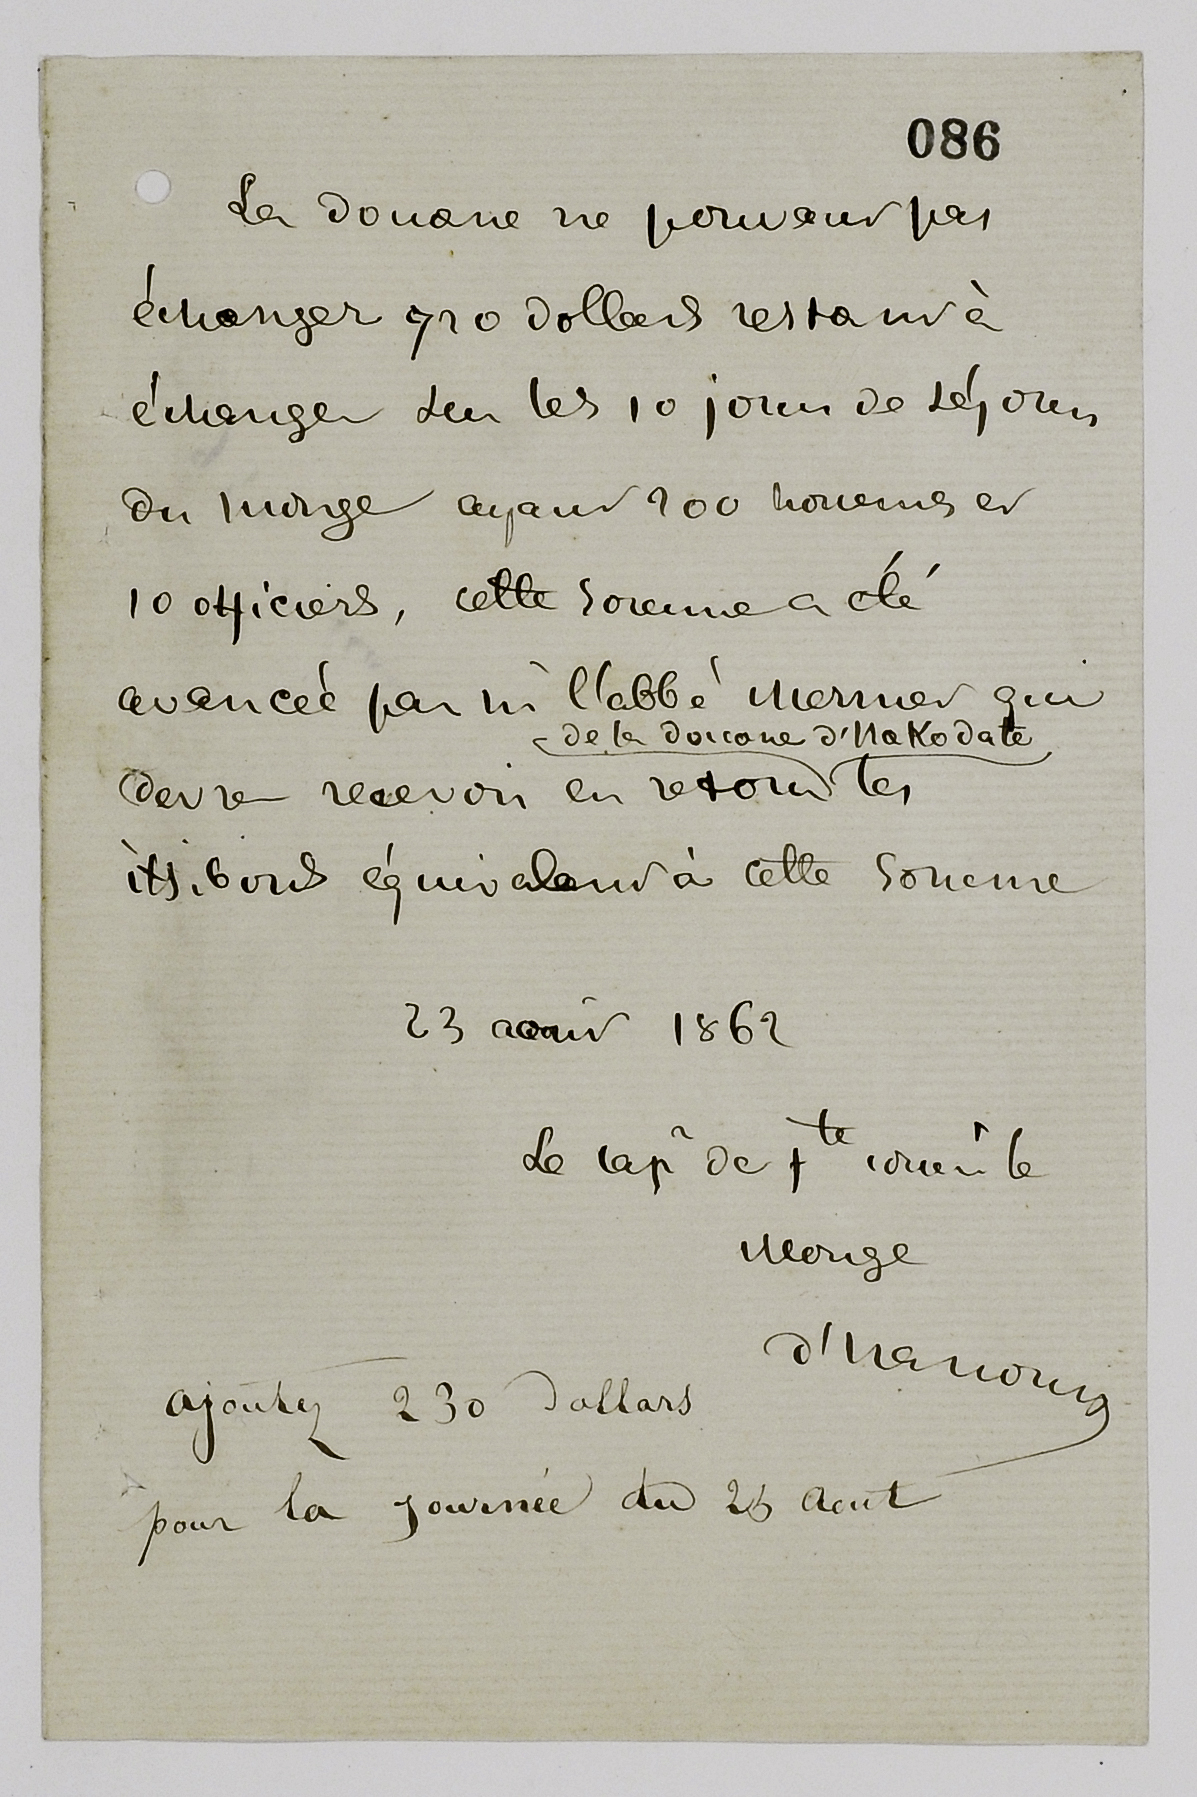 086
La douane ne pouvant pas
échanger 720 dollars restant à
échanger sur les 10 jours de séjour
du Monge ayant 200 hommes et
10 officiers, cette somme a été
avancée par Mr l'abbé Mermet qui
de la douane d'Hakodate
devra recevoir en retour les
itsibous équivalant à cette somme
23 août 1862
Le capne de fte commt le
Monge
d'Harcourt
ajoutez 230 dollars
pour la journée du 25 Aout